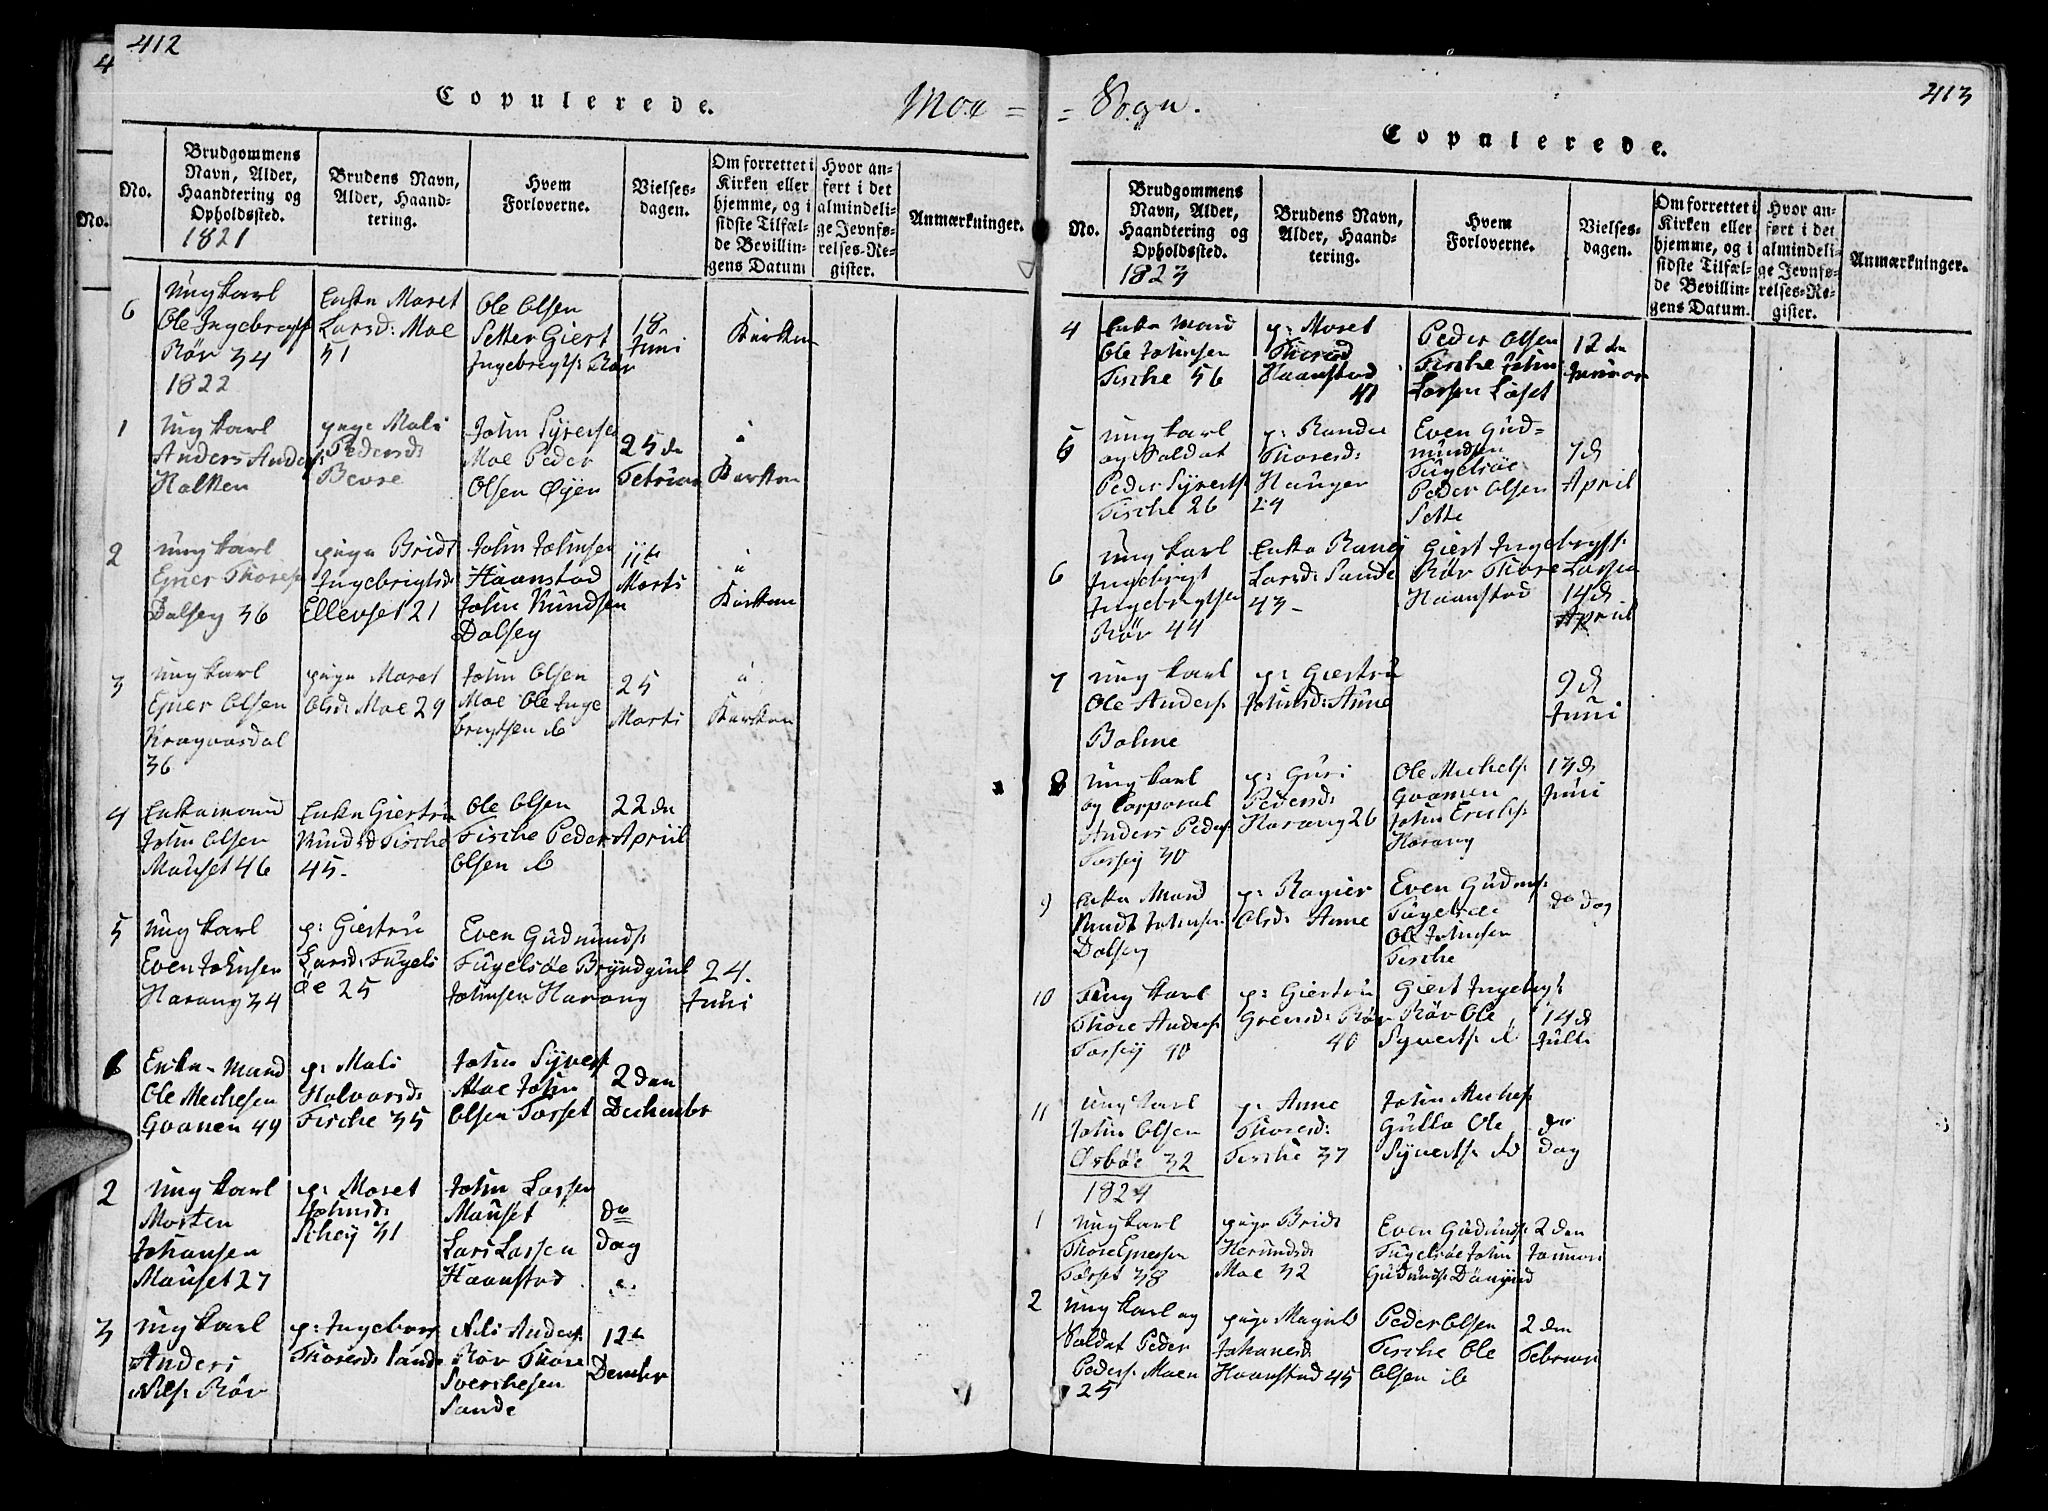 412
Copulerede.
Moe =
No.
Brudgommens
Navn, Alder,
Haandtering og
Opholdssted.
1821
Brudens Navn,
Alder, Haand-
tering.
Hvem
Forloverne.
Vielses-
dagen.
Om forrettet i
Kirken eller
hjemme, og i
sidste Tilfæl-
de Bevillin-
gens Datum
Hvor an-
ført i det
almindeli-
ge Jevnfø-
relses-Re-
gister.
Anmærkninger.
6
Ung karl
Ole Ingebrigts
Røv 34
Enka Maret
Larsd: Moe
51
Ole Olsen
Setter Giert
Ingebregts: Røv
18
Juni
Kirken
1822
1
Ung karl
Anders Anders:
Halken
pige Mali
Pedersd
Bevre
John Syverse
Moe Peder
Olsen Øyen
25 de
Februar
i
Kirken
2
Ung karl
Ener Thores
Dalsey 36
pige Bridt
Ingebrigtsd
Ellevset 21
John Johnsen
Haanstad
John Knudsen
Dalsey
11te
Marti
i
Kirken
3
Ung karl
Ener Olsen
Kragvasdal
36
pige Maret
Olsd: Moe 29
John Olsen
Moe Ole Inge
brigtsen ib
25
Marti
i
Kirken
4
Enkemand
John Olsen
Mauset 46
Enke Giertru
Knudsd Fiske
45.
Ole Olsen
Fische Peder
Olsen ib
22 de
April
5
Ung karl
Even Johnsen
Harang 34
p: Giertru
Larsd: Fugels
øe 25
Even Gudmunds:
Fugelsøe Bryndgiul
Johnsen Harang
24.
Juni
6
Enke-mand
Ole Mechesen
Gvanen 49
p: Mali
Halvarsd:
Fische 35
John Syverst
Moe John
Olsen Torset
2 den
Dechember
2
Ung karl
Morten
Johansen
Mauset 27
p: Maret
Johnsd:
Schey 31
John Larsen
Mauset
Lars Larsen
Haanstad
do
Dag
3
Ung karl
Anders
Nils: Røv
p: Ingebor
Thoresd: Sande
Nils Anders:
Røv Thore
Sverchesen
Sande
12te
Decmbr
= Sogn.
413
Copulerede.
No.
Brudgommens
Navn, Alder,
Haandtering og
Opholdssted.
1823
Brudens Navn,
Alder, Haand-
tering.
Hvem
Forloverne.
Vielses-
dagen.
Om forrettet i
Kirken eller
hjemme, og i
sidste Tilfæl-
de Bevillin-
gens Datum.
Hvor an-
ført i det
almindeli-
ge Jevnfø-
relses-Re-
gister.
Anmærkninger.
4
Enke mand
Ole Johnsen
Fische 56
p: Maret
Haanstad
41
Peder Olsen
Fische John
Larsen Løset
12 de
Januar
5
Ung karl
og Soldat
Peder Syverts
Fische 26
p: Randie
Thoresd:
Hauger
24
Even Gud=
mundsen
Fugelsøe
Peder Olsen
Sette
7d
April
6
Ung karl
Ingebrigt
Ingebrigtsen
Røv 44
Enka Ranej
Larsd: Sande
43-
Giert Ingebrygts
Røv Thore Larsen
Haanstad
14 d
April
7
Ung karl
Ole Anders:
Bolme
p: Giertru
Johnsd: Aune
9 d
Juni
8
Ung karl
og Corporal
Anders Peders:
Torsey 30
p: Guri
Pedersd:
Harang 26
Ole Michels:
Gvamen
John Ericks:
Harang
13 d
Juni
9
Enke Mand
Knudt Johnsen
Dalsey
p: Ragier
Olsd: Aune
Even Gudms:
Fugelsøe
Ole Johnsen
Fische
do Dag
10
Ung karl
Thore Anders:
Torsey 40
p: Giertru
Røv
40
Giert Ingebrigt
Røv Ole
Syverts: ib
14 d
Julli
11
Ung karl
John Olsen
Øsbøe 32
p: Anne
Thoresd:
Fische 37
John Miches
Gulla Ole
Syverts: ib
do
Dag
1824
1
Ung karl
Thore Enersen
Torset 38
pige Bridt
Moe 32
Even Gudmds:
Fugelsøe John
2 den
Januari
2
Ung karl og
Soldat Peder
Peders: Moen
25
pige Magnil
Johanesd:
Haanstad 45
Peder Olsen
Fische Ole
Olsen ib
2 den
Februari